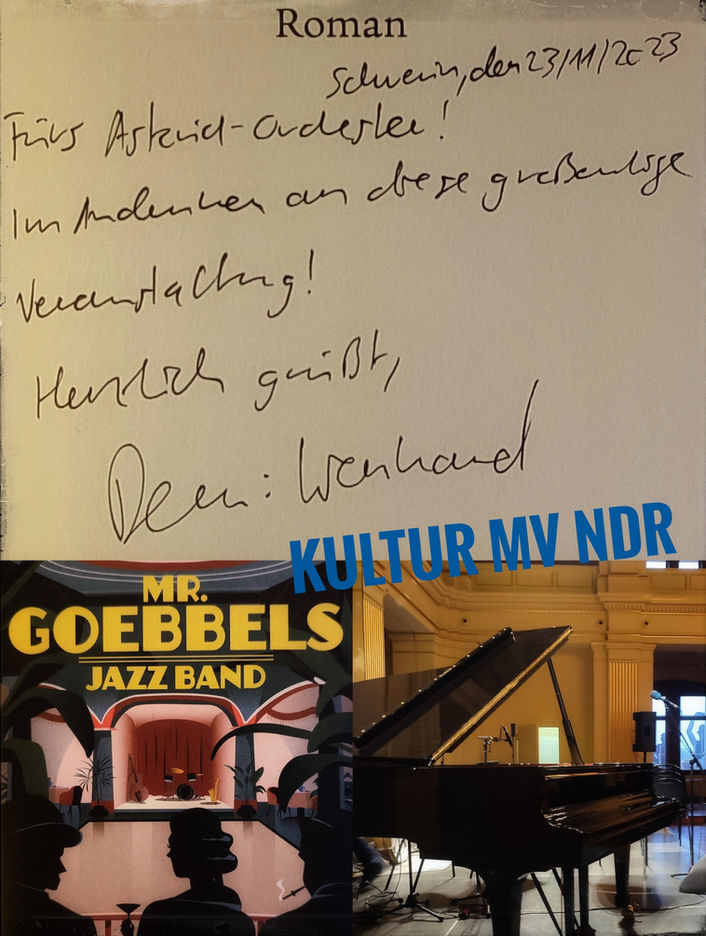 Roman
Schwerin, den 23/11/2023
Fürs Astrid-Orchester!
Im Andenken an diese großartige
Veranstaltung!
Herzlich grüßt,
Demi: Wienhand
KULTUR MV NDR
MR.
GOEBBELS
JAZZ BAND